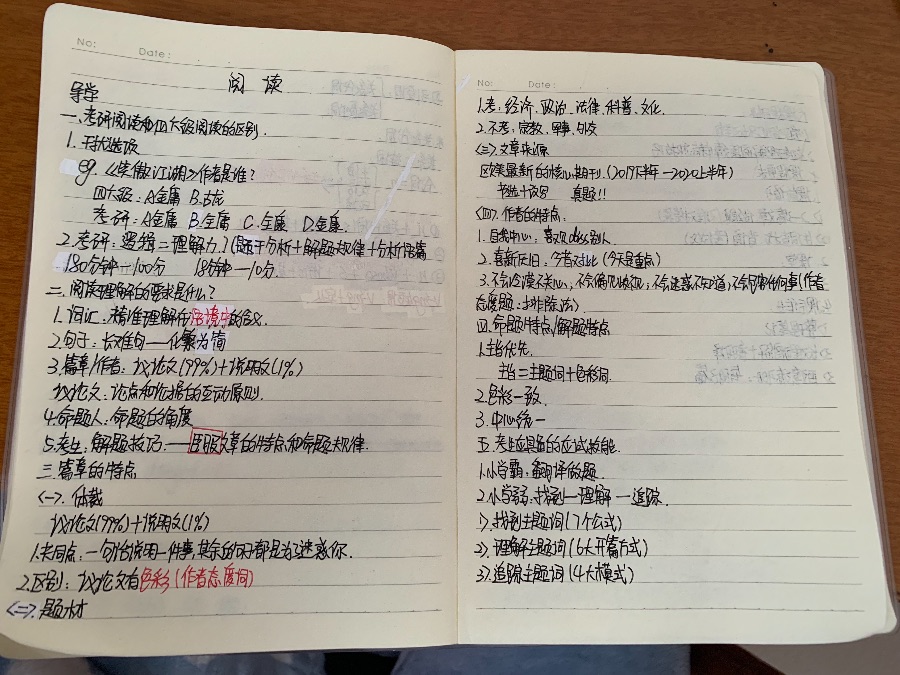 No:
Date:
阅 读
导学
一、考研阅读和四六级阅读的区别.
1. 干扰选项
eg.《笑傲江湖》作者是谁?
四六级: A金庸 B.古龙
考研: A金庸 B.全庸 C.全庸 D.金庸
2. 考研: 逻辑=理解力)(题干分析+解题规律+分析信篇
180分钟—100分 18分钟—10分.
二. 阅读理解的要求是什么?
1. 词汇: 精准理解在语境中的含义.
2. 句子: 长难句——化繁为简
3. 篇章/作者: 议论文(99%)+说明文(1%)
议论文: 论点和论据的互动原则.
4. 命题人: 命题的角度
5. 考生: 解题技巧.——臣服文章的特点和命题规律.
三. 篇章的特点
<一>. 体裁
议论文(99%)+说明文(1%)
1. 共同点: 一句话说明一件事,其余的句子都是为了迷惑你.
2. 区别: 议论文有色彩(作者态度词)
<二>. 题材
No:
Date:
1. 考: 经济、政治、法律、科普、文化
2. 不考: 宗教、军事、外交
<三>. 文章来源
欧美最新的核心期刊.(2017下半年—2020上半年)
真题!!
<四>. 作者的特点:
1. 自我中心, 喜欢diss别人
2. 喜新厌旧, 今昔对比(今是重点)
3. 不会冷漠不关心,不会偏见歧视,不会迷惑不知道,不会同时(作者
态度题: 排除法)
四. 命题特点/解题特点
1. 主旨优先.
主旨=主题词+色彩词.
2. 色彩一致.
3. 中心统一
五. 考生应具备的应试技能.
1. 小学霸: 翻译做题.
2. 小学弱: 找到—理解—追踪.
1). 找到主题词(7个公式)
2). 理解主题词(6大开篇方式)
3). 追踪主题词(4大模式)